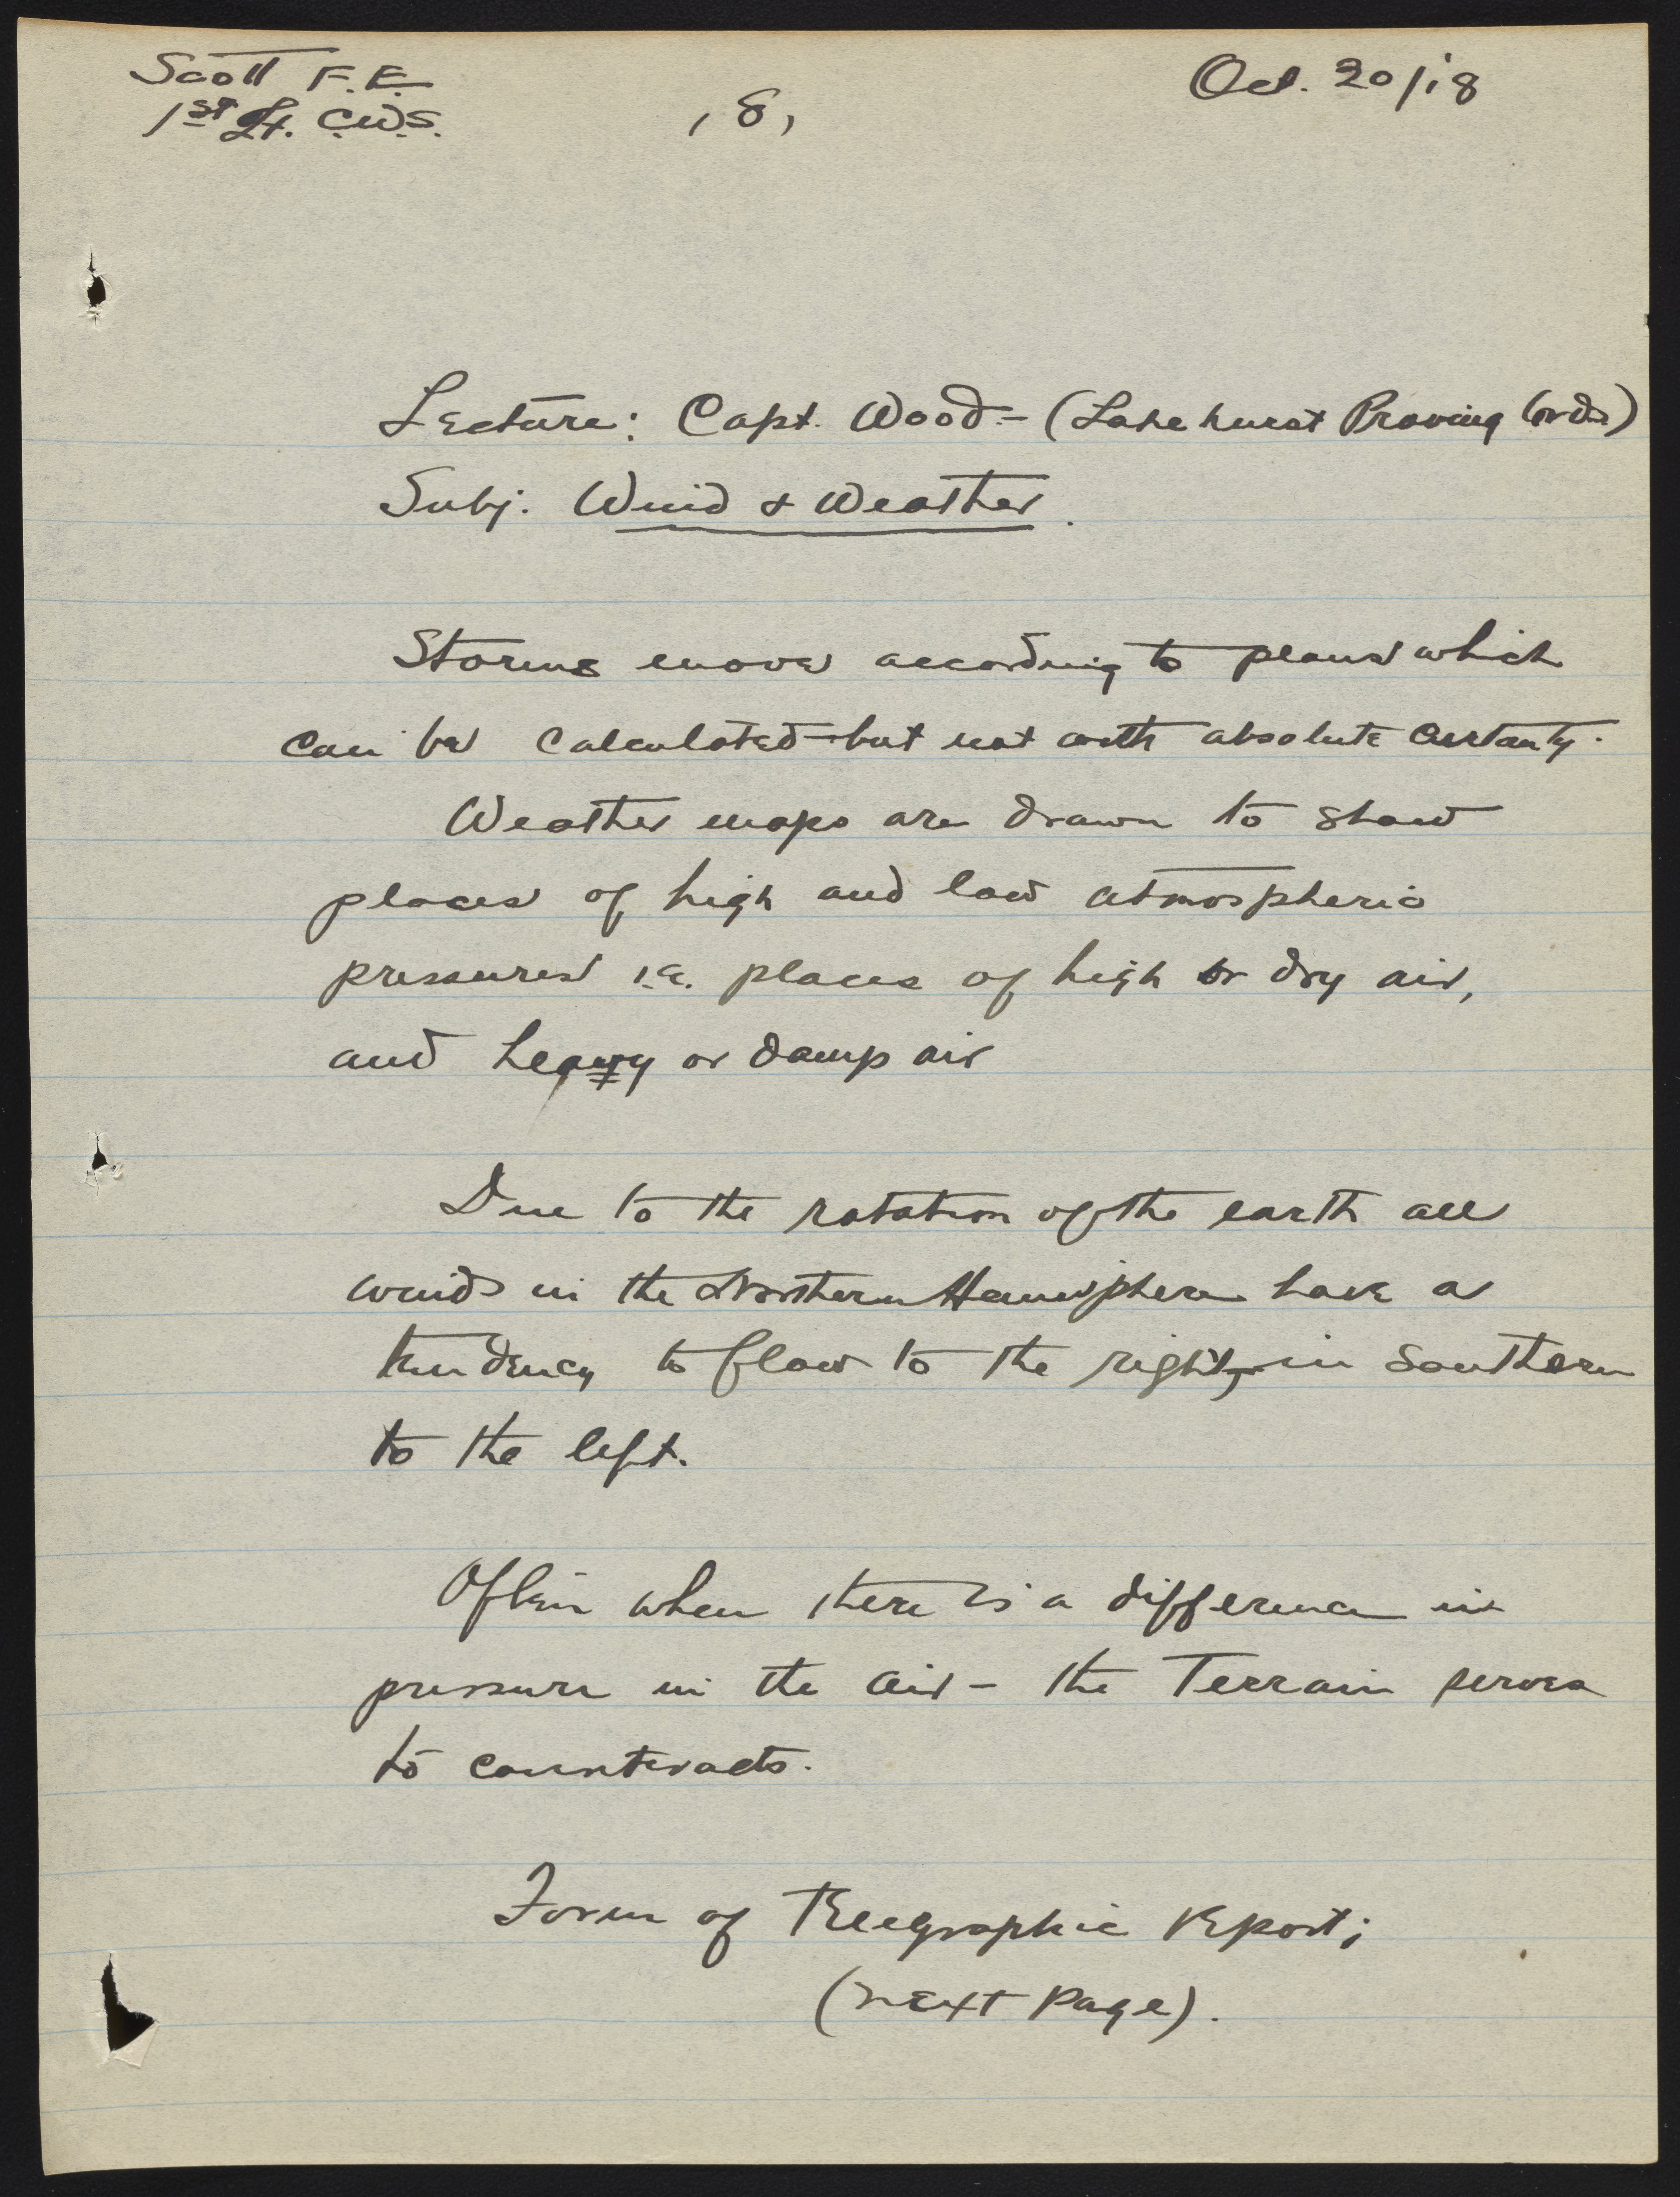 Scott F.E.
1st Lt. C.W.S.
, 8,
Oct. 20/18
Lecture: Capt. Wood - (Lakehurst Proving Grds)
Subj. Wind & Weather.
Storms move according to plans which
can be calculated but not with absolute certanty.
Weather maps are drawn to show
places of high and low atmospheric
pressures i.e. places of high or dry air,
and heavy or damp air
Due to the rotation of the earth all
winds in the Northern Hemisphere have a
tendency to flow to the right, in Southern
to the left.
Often when there is a difference in
pressure in the air - the Terrain serves
to counteracts.
Form of Telegraphic Report;
(next Page).